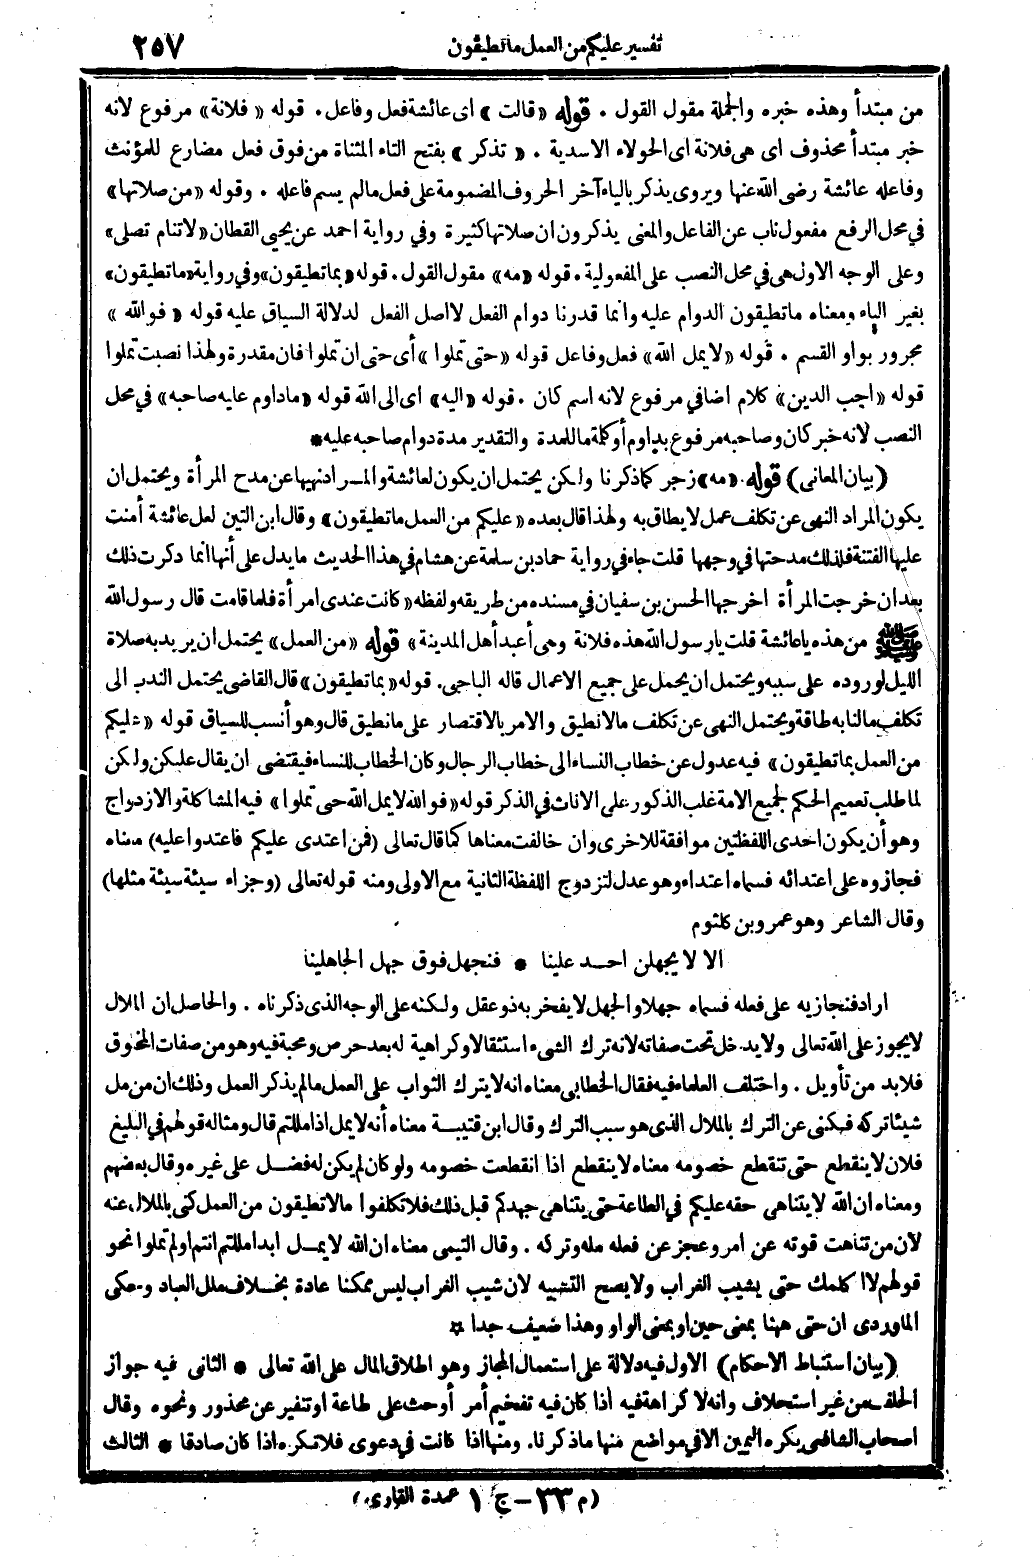 تفسير عليكم من العمل ما تطيقون ٢٥٧
من مبتدأ وهذه خبره والجملة مقول القول . قوله « قالت » اى عائشة فعل وفاعل . قوله « فلانة » مرفوع لانه
خبر مبتدأ محذوف اى هى فلانة اى الحولاء الاسدية . « تذكر » بفتح التاء المثناة من فوق فعل مضارع للمؤنث
وفاعله عائشة رضى الله عنها ويروى يذكر بالياء آخر الحروف المضمومة على فعل مالم يسم فاعله . وقوله « من صلاتها »
فى محل الرفع مفعول ناب عن الفاعل والمعنى يذكرون ان صلاتها كثيرة وفي رواية احمد عن يحيى القطان « لاتنام تصلى »
وعلى الوجه الاول هى فى محل النصب على المفعولية . قوله « مه » مقول القول . قوله « بما تطيقون » وفي رواية « ما تطيقون »
بغير الباء ومعناه ما تطيقون الدوام عليه وانما قدرنا دوام الفعل لا اصل الفعل لدلالة السياق عليه قوله « فوالله »
مجرور بواو القسم . قوله « لايمل الله » فعل وفاعل قوله « حتى تملوا » أى حتى ان تملوا فان مقدرة ولهذا نصبت تملوا
قوله « احب الدين » كلام اضافي مرفوع لانه اسم كان . قوله « اليه » اى الى الله قوله « ماداوم عليه صاحبه » في محل
النصب لانه خبر كان وصاحبه مرفوع بداوم أو كلمة ما للمدة والتقدير مدة دوام صاحبه عليه *
(بيان المعانى) قوله « مه » زجر كما ذكرنا ولكن يحتمل ان يكون لعائشة والمراد نهيها عن مدح المرأة ويحتمل ان
يكون المراد النهى عن تكلف عمل لا يطاق به ولهذا قال بعده « عليكم من العمل ما تطيقون » وقال ابن التين لعل عائشة أمنت
عليها الفتنة فلذلك مدحتها في وجهها قلت جاء في رواية حماد بن سلمة عن هشام في هذا الحديث ما يدل على أنها انما ذكرت ذلك
بعد ان خرجت المرأة اخرجها الحسن بن سفيان في مسنده من طريقه ولفظه « كانت عندى امرأة فلما قامت قال رسول الله
ﷺ من هذه ياعائشة قلت يارسول الله هذه فلانة وهى أعبد أهل المدينة » قوله « من العمل » يحتمل ان يريد به صلاة
الليل لوروده على سببه ويحتمل ان يحمل على جميع الاعمال قاله الباجى . قوله « بما تطيقون » قال القاضى يحتمل الندب الى
تكلف مالنا به طاقة ويحتمل النهى عن تكلف مالا نطيق والامر بالاقتصار على ما نطيق قال وهو أنسب للسياق قوله « عليكم
من العمل بما تطيقون » فيه عدول عن خطاب النساء الى خطاب الرجال وكان الخطاب للنساء فيقتضى ان يقال عليكن ولكن
لما طلب تعميم الحكم لجميع الامة غلب الذكور على الاناث في الذكر قوله « فوالله لا يمل الله حتى تملوا » فيه المشاكلة والازدواج
وهو أن يكون احدى اللفظتين موافقة للاخرى وان خالفت معناها كما قال تعالى (فمن اعتدى عليكم فاعتدوا عليه) معناه
فجازوه على اعتدائه فسماه اعتداء وهو عدل لتزدوج اللفظة الثانية مع الاولى ومنه قوله تعالى (وجزاء سيئة سيئة مثلها)
وقال الشاعر وهو عمرو بن كلثوم
الا لا يجهلن احد علينا * فنجهل فوق جهل الجاهلينا
اراد فنجازيه على فعله فسماه جهلا والجهل لا يفخر به ذو عقل ولكنه على الوجه الذى ذكرناه . والحاصل ان الملال
لا يجوز على الله تعالى ولا يدخل تحت صفاته لانه ترك الشىء استثقالا وكراهية له بعد حرص ومحبة فيه وهو من صفات المخلوق
فلا بد من تأويل . واختلف العلماء فيه فقال الخطابى معناه انه لا يترك الثواب على العمل مالم يذكر العمل وذلك ان من مل
شيئا تركه فكنى عن الترك بالملال الذى هو سبب الترك وقال ابن قتيبة معناه أنه لا يمل اذا مللتم قال ومثاله قولهم في البليغ
فلان لا ينقطع حتى تنقطع خصومه معناه لا ينقطع اذا انقطعت خصومه ولو كان لم يكن له فضل على غيره وقال بعضهم
ومعناه ان الله لا يتناهى حقه عليكم في الطاعة حتى يتناهى جهدكم قبل ذلك فلا تكلفوا مالا تطيقون من العمل كنى بالملال عنه
لان من تناهت قوته عن امر وعجز عن فعله مله وتركه . وقال التيمى معناه ان الله لا يمل ابدا مللتم انتم او لم تملوا نحو
قولهم لا اكلمك حتى يشيب الغراب ولا يصح التشبيه لان شيب الغراب ليس ممكنا عادة بخلاف ملل العباد وحكى
الماوردى ان حتى ههنا بمعنى حين او بمعنى الواو وهذا ضعيف جدا *
(بيان استنباط الاحكام) الاول فيه دلالة على استعمال المجاز وهو اطلاق المال على الله تعالى * الثانى فيه جواز
الحلف من غير استحلاف وانه لا كراهة فيه اذا كان فيه تفخيم أمر أو حث على طاعة او تنفير عن محذور ونحوه وقال
اصحاب الشافعى يكره اليمين الا في مواضع منها ما ذكرنا . ومنها اذا كانت في دعوى فلا تكره اذا كان صادقا * الثالث
(م ٣٣ – ج ١ عمدة القارى)